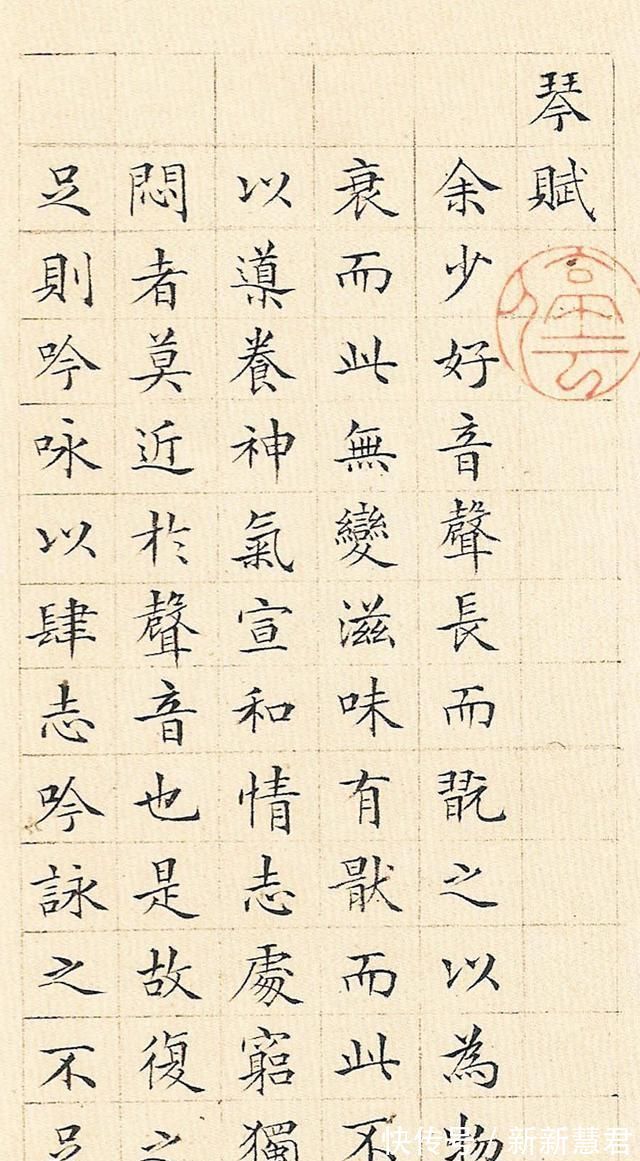 琴賦
余少好音聲長而翫之以為物
衰而此無變滋味有猒而此不
以導養神氣宣和情志處窮獨
悶者莫近於聲音也是故復之
足則吟咏以肆志吟詠之不足
快传号 / 新新慧君